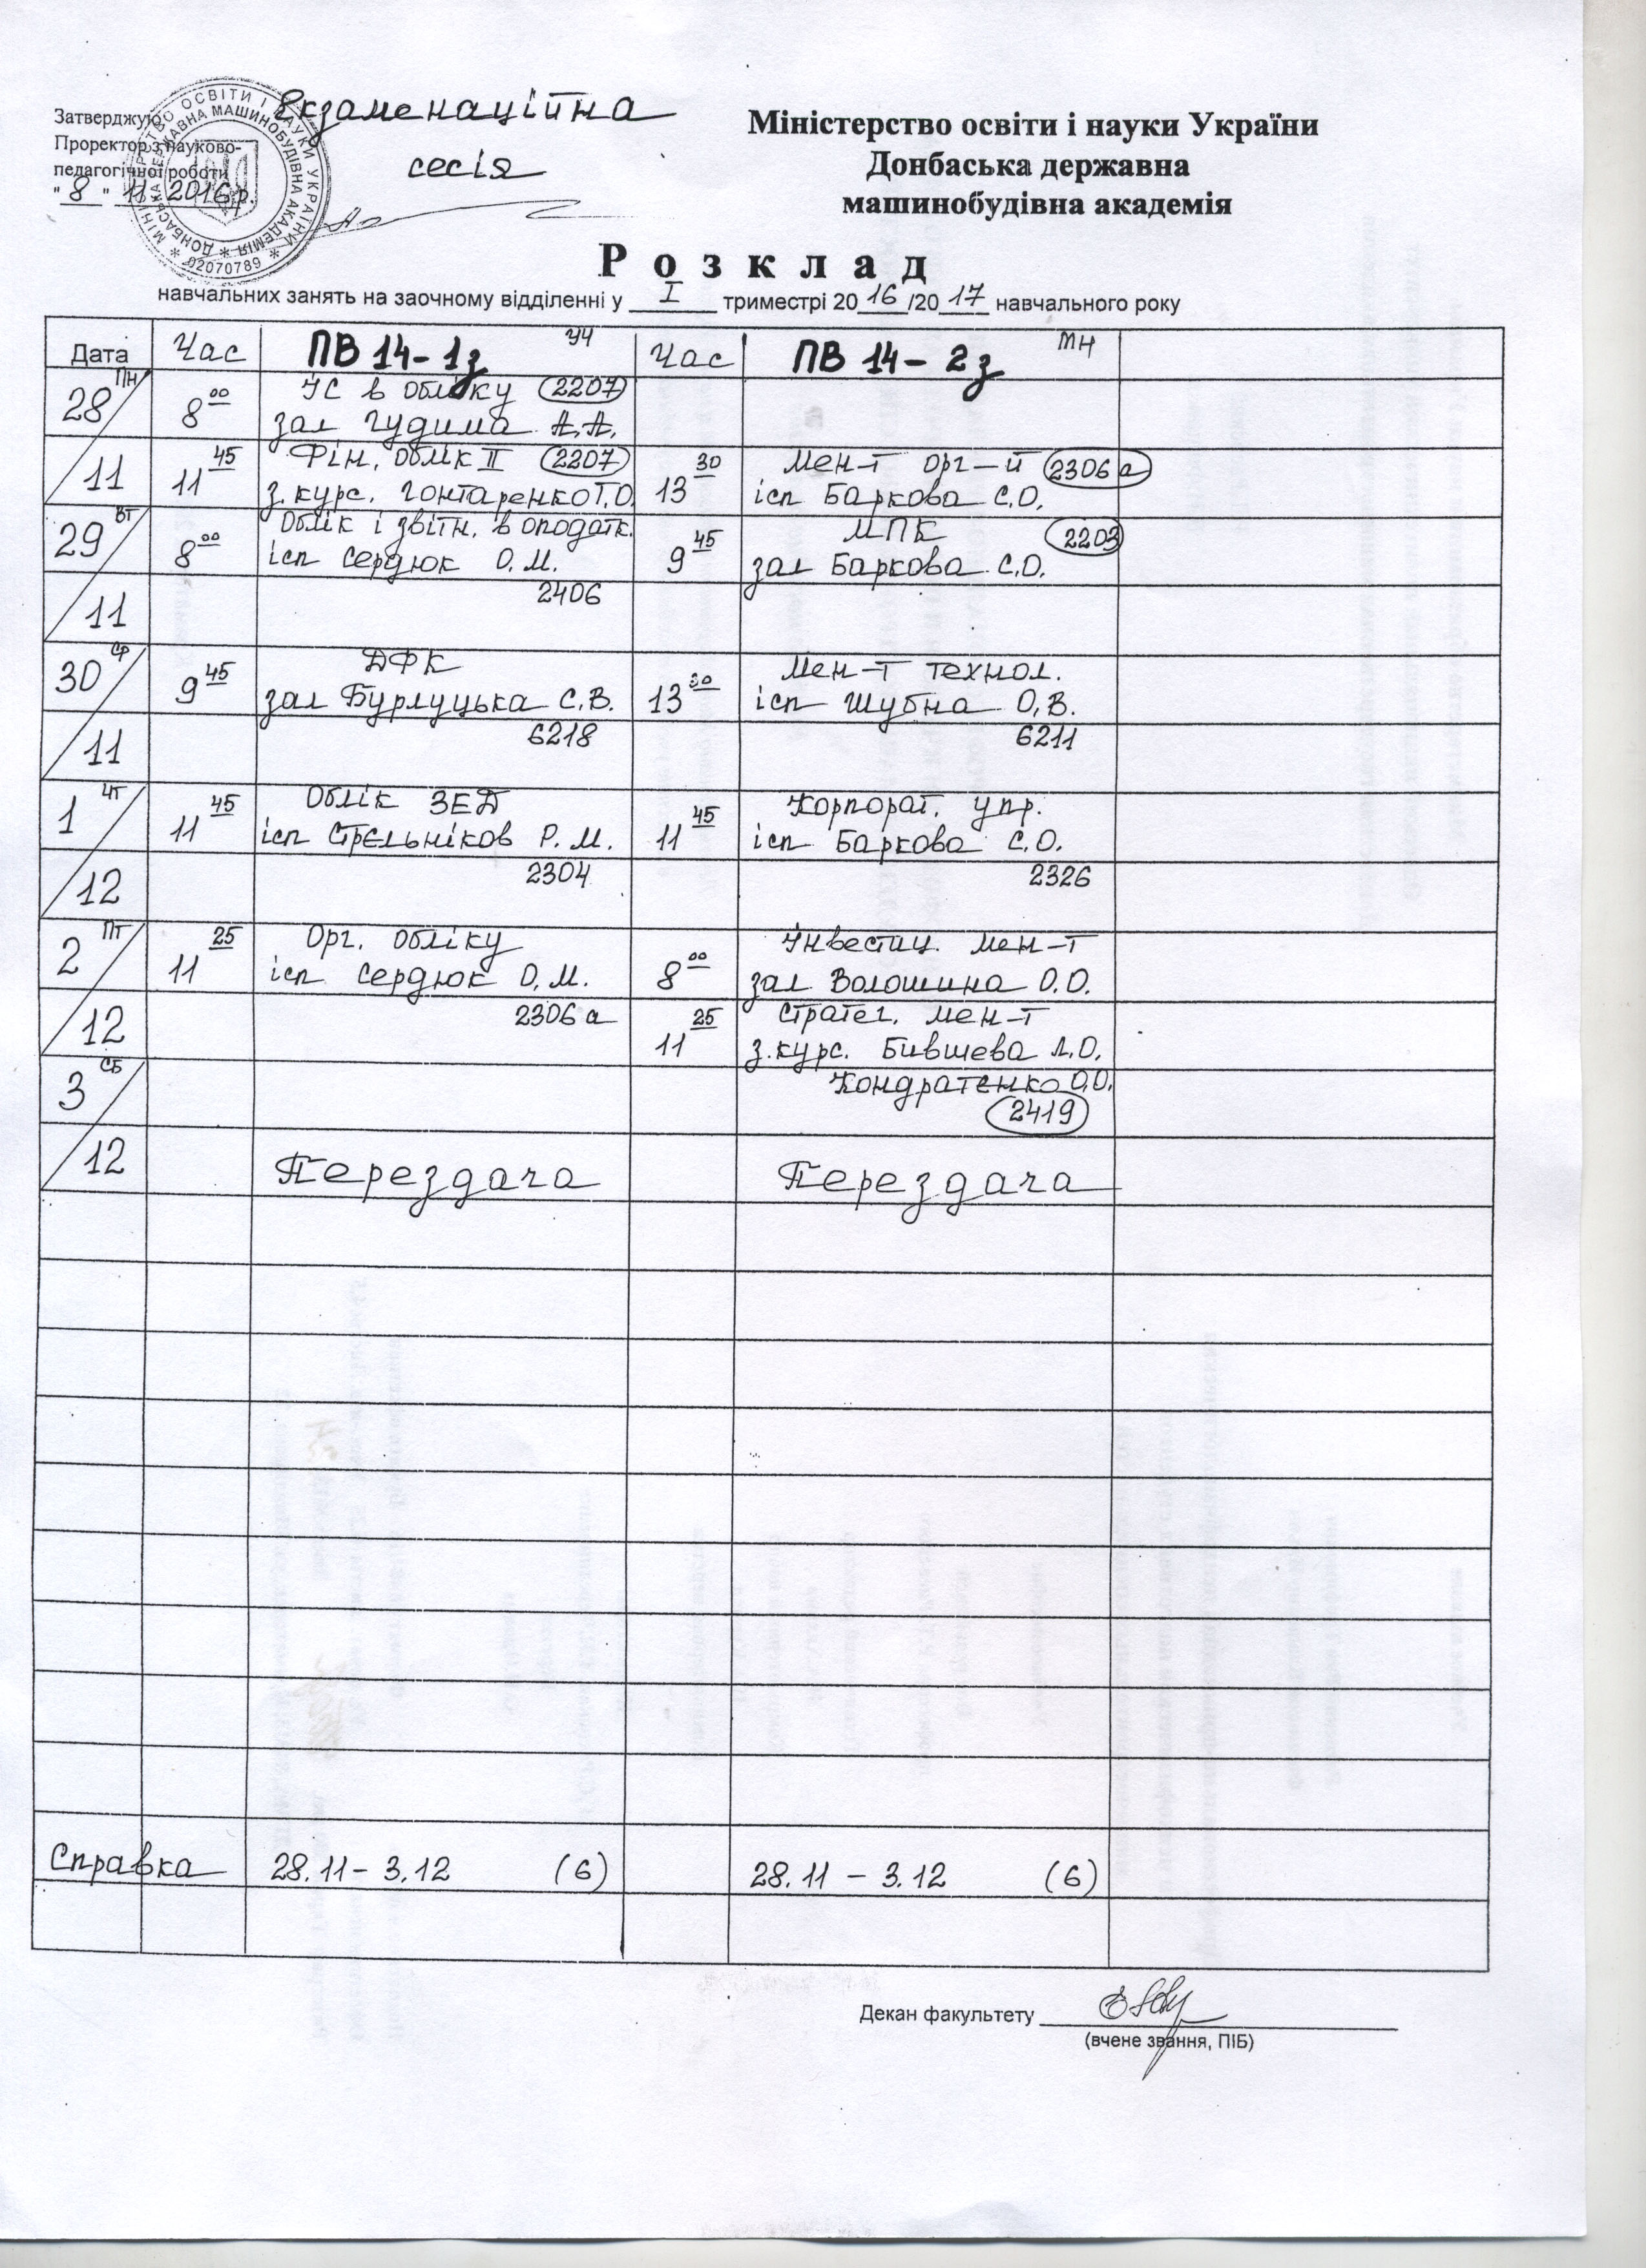 Затверджую
Проректор з науково-
педагогічної роботи
"8" 11 2016р.
МІНІСТЕРСТВО ОСВІТИ І НАУКИ УКРАЇНИ
ДОНБАСЬКА ДЕРЖАВНА МАШИНОБУДІВНА АКАДЕМІЯ
02070789
Екзаменаційна
сесія
Міністерство освіти і науки України
Донбаська державна
машинобудівна академія
Розклад
навчальних занять на заочному відділенні у I триместрі 2016/2017 навчального року
Дата Час ПВ 14-1з Час ПВ 14-2з МН
28 ПН 8 00 ІС в обліку 2207
зал Гудима А.А.
11 11 45 Фін. облік II 2207 13 30 Мен-т орг-й 2306а
з.курс. Гонтаренко Т.О. ісп Баркова С.О.
29 ВТ 8 00 Облік і звітн. в оподатк. 9 45 МПК 2203
ісп Сердюк О.М. зал Баркова С.О.
11 2406
30 СР 9 45 ДФК 13 30 Мен-т технол.
зал Бурлуцька С.В. ісп Шубна О.В.
11 6218 6211
1 ЧТ 11 45 Облік ЗЕД 11 45 Корпорат. упр.
ісп Стрєльніков Р.М. ісп Баркова С.О.
12 2304 2326
2 ПТ 11 25 Орг. обліку 8 00 Інвестиц. мен-т
ісп Сердюк О.М. зал Волошина О.О.
12 2306а 11 25 Стратег. мен-т
з.курс. Бившева Л.О.
3 СБ Кондратенко О.О.
2419
12 Перездача Перездача
Справка 28.11-3.12 (6) 28.11-3.12 (6)
Декан факультету
(вчене звання, ПІБ)